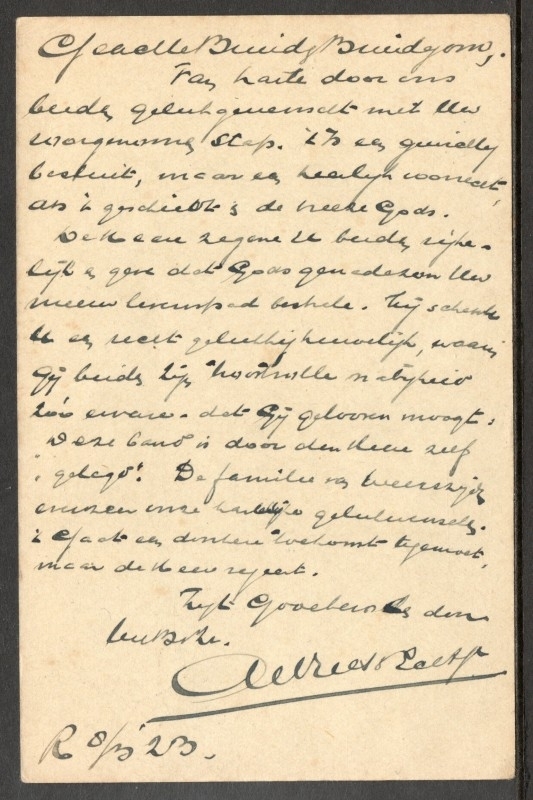 Geachte Bruid & Bruidegom,
Van harte door ons
beiden gelukgewenscht met Uw
voorgenomen stap. 't Is een gewichtig
besluit, maar een heerlijk voorrecht,
als 't geschiedt in de vreeze Gods.
De Heere zegene U beiden rijke-
lijk en geve dat Gods genadezon Uw
nieuw levenspad bestrale. Hij schenke
U een recht gelukkig huwelijk, waarin
Gij beiden Zijn troostvolle nabijheid
zóó ervare, dat Gij gelooven moogt:
Deze band is door den Heere zelf
gelegd! De familie van weerszijden
onze hartelijke gelukwenschen.
't Gaat een donkere toekomst tegemoet,
maar de Heere regeert.
Zijt Gode bevolen door

R 8/3 '23.